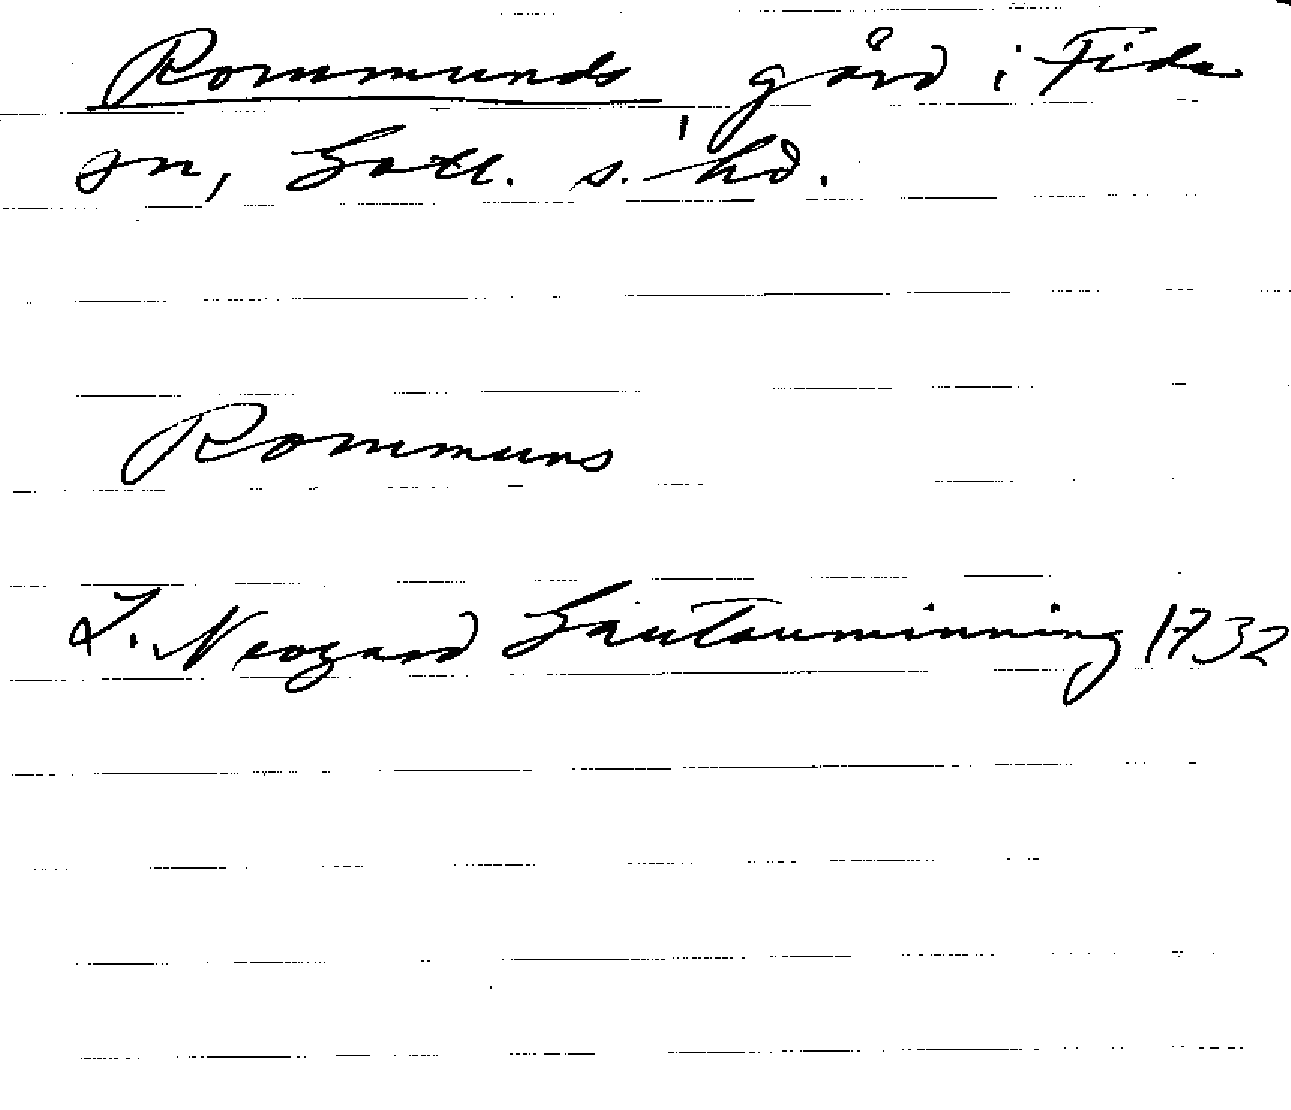 Rommunds gård i Fide
sn, Gotl. s. hd.
Rommuns
L. Neogard Gautauminning 1732